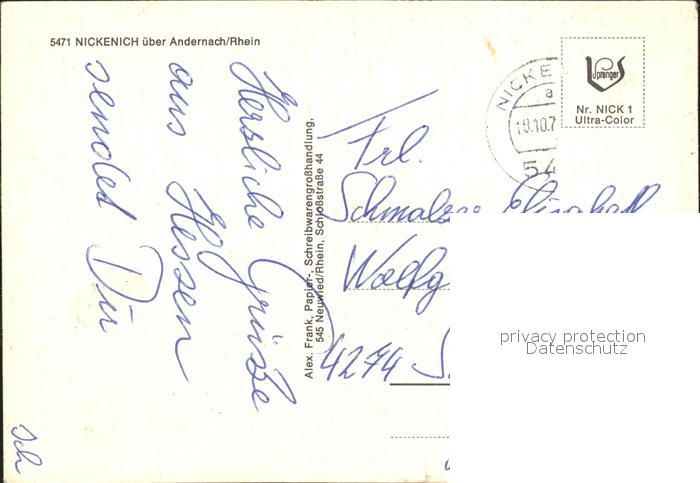 5471 NICKENICH über Andernach/Rhein
Herzliche Grüße
aus Hessen
sendet Dir
Sch
Alex. Frank, Papier-, Schreibwarengroßhandlung,
545 Neuwied/Rhein, Schloßstraße 44
NICKE
a
19.10.7
54
Sprenger
Nr. NICK 1
Ultra-Color
Frl.
Elisabeth
Wolfg
4274 S
privacy protection
Datenschutz